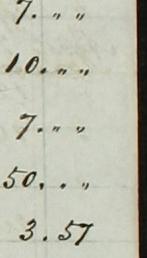 7. " "
10. " "
7. " "
50. . "
3.57